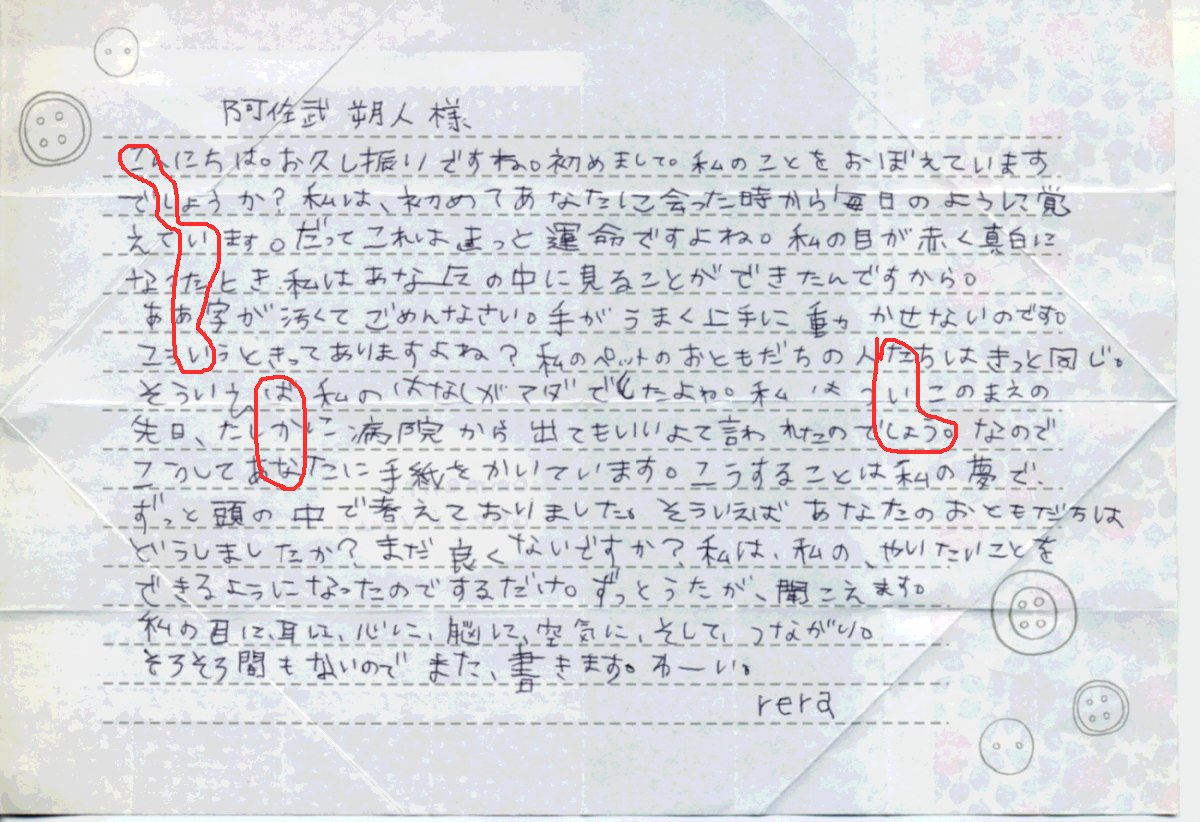 阿佐武 朔人 様
こんにちは。お久し振りですね。初めまして。私のことをおぼえています
でしょうか?私は、初めてあなたに会った時から毎日のように覚
えています。だってこれはきっと運命ですよね。私の目が赤く真白に
なったとき私はあなたの中に見ることができたんですから。
ああ字が汚くてごめんなさい。手がうまく上手に動かせないのです。
こういうときってありますよね?私のペットのおともだちの人たちはきっと同じ。
そういえば私のはなしがマダでしたよね。私はついこのまえの
先日、たしかに病院から出てもいいよて言われたのでしょう。なので
こうしてあなたに手紙をかいています。こうすることは私の夢で、
ずっと頭の中で考えておりました。そういえばあなたのおともだちは
どうしましたか?まだ良くないですか?私は、私の、やいたいことを
できるようになったのでするだけ。ずっとうたが、聞こえます。
私の目に、耳に、心に、脳に、空気に、そして、つながり。
そろそろ間もないのでまた、書きます。わーい。
rera